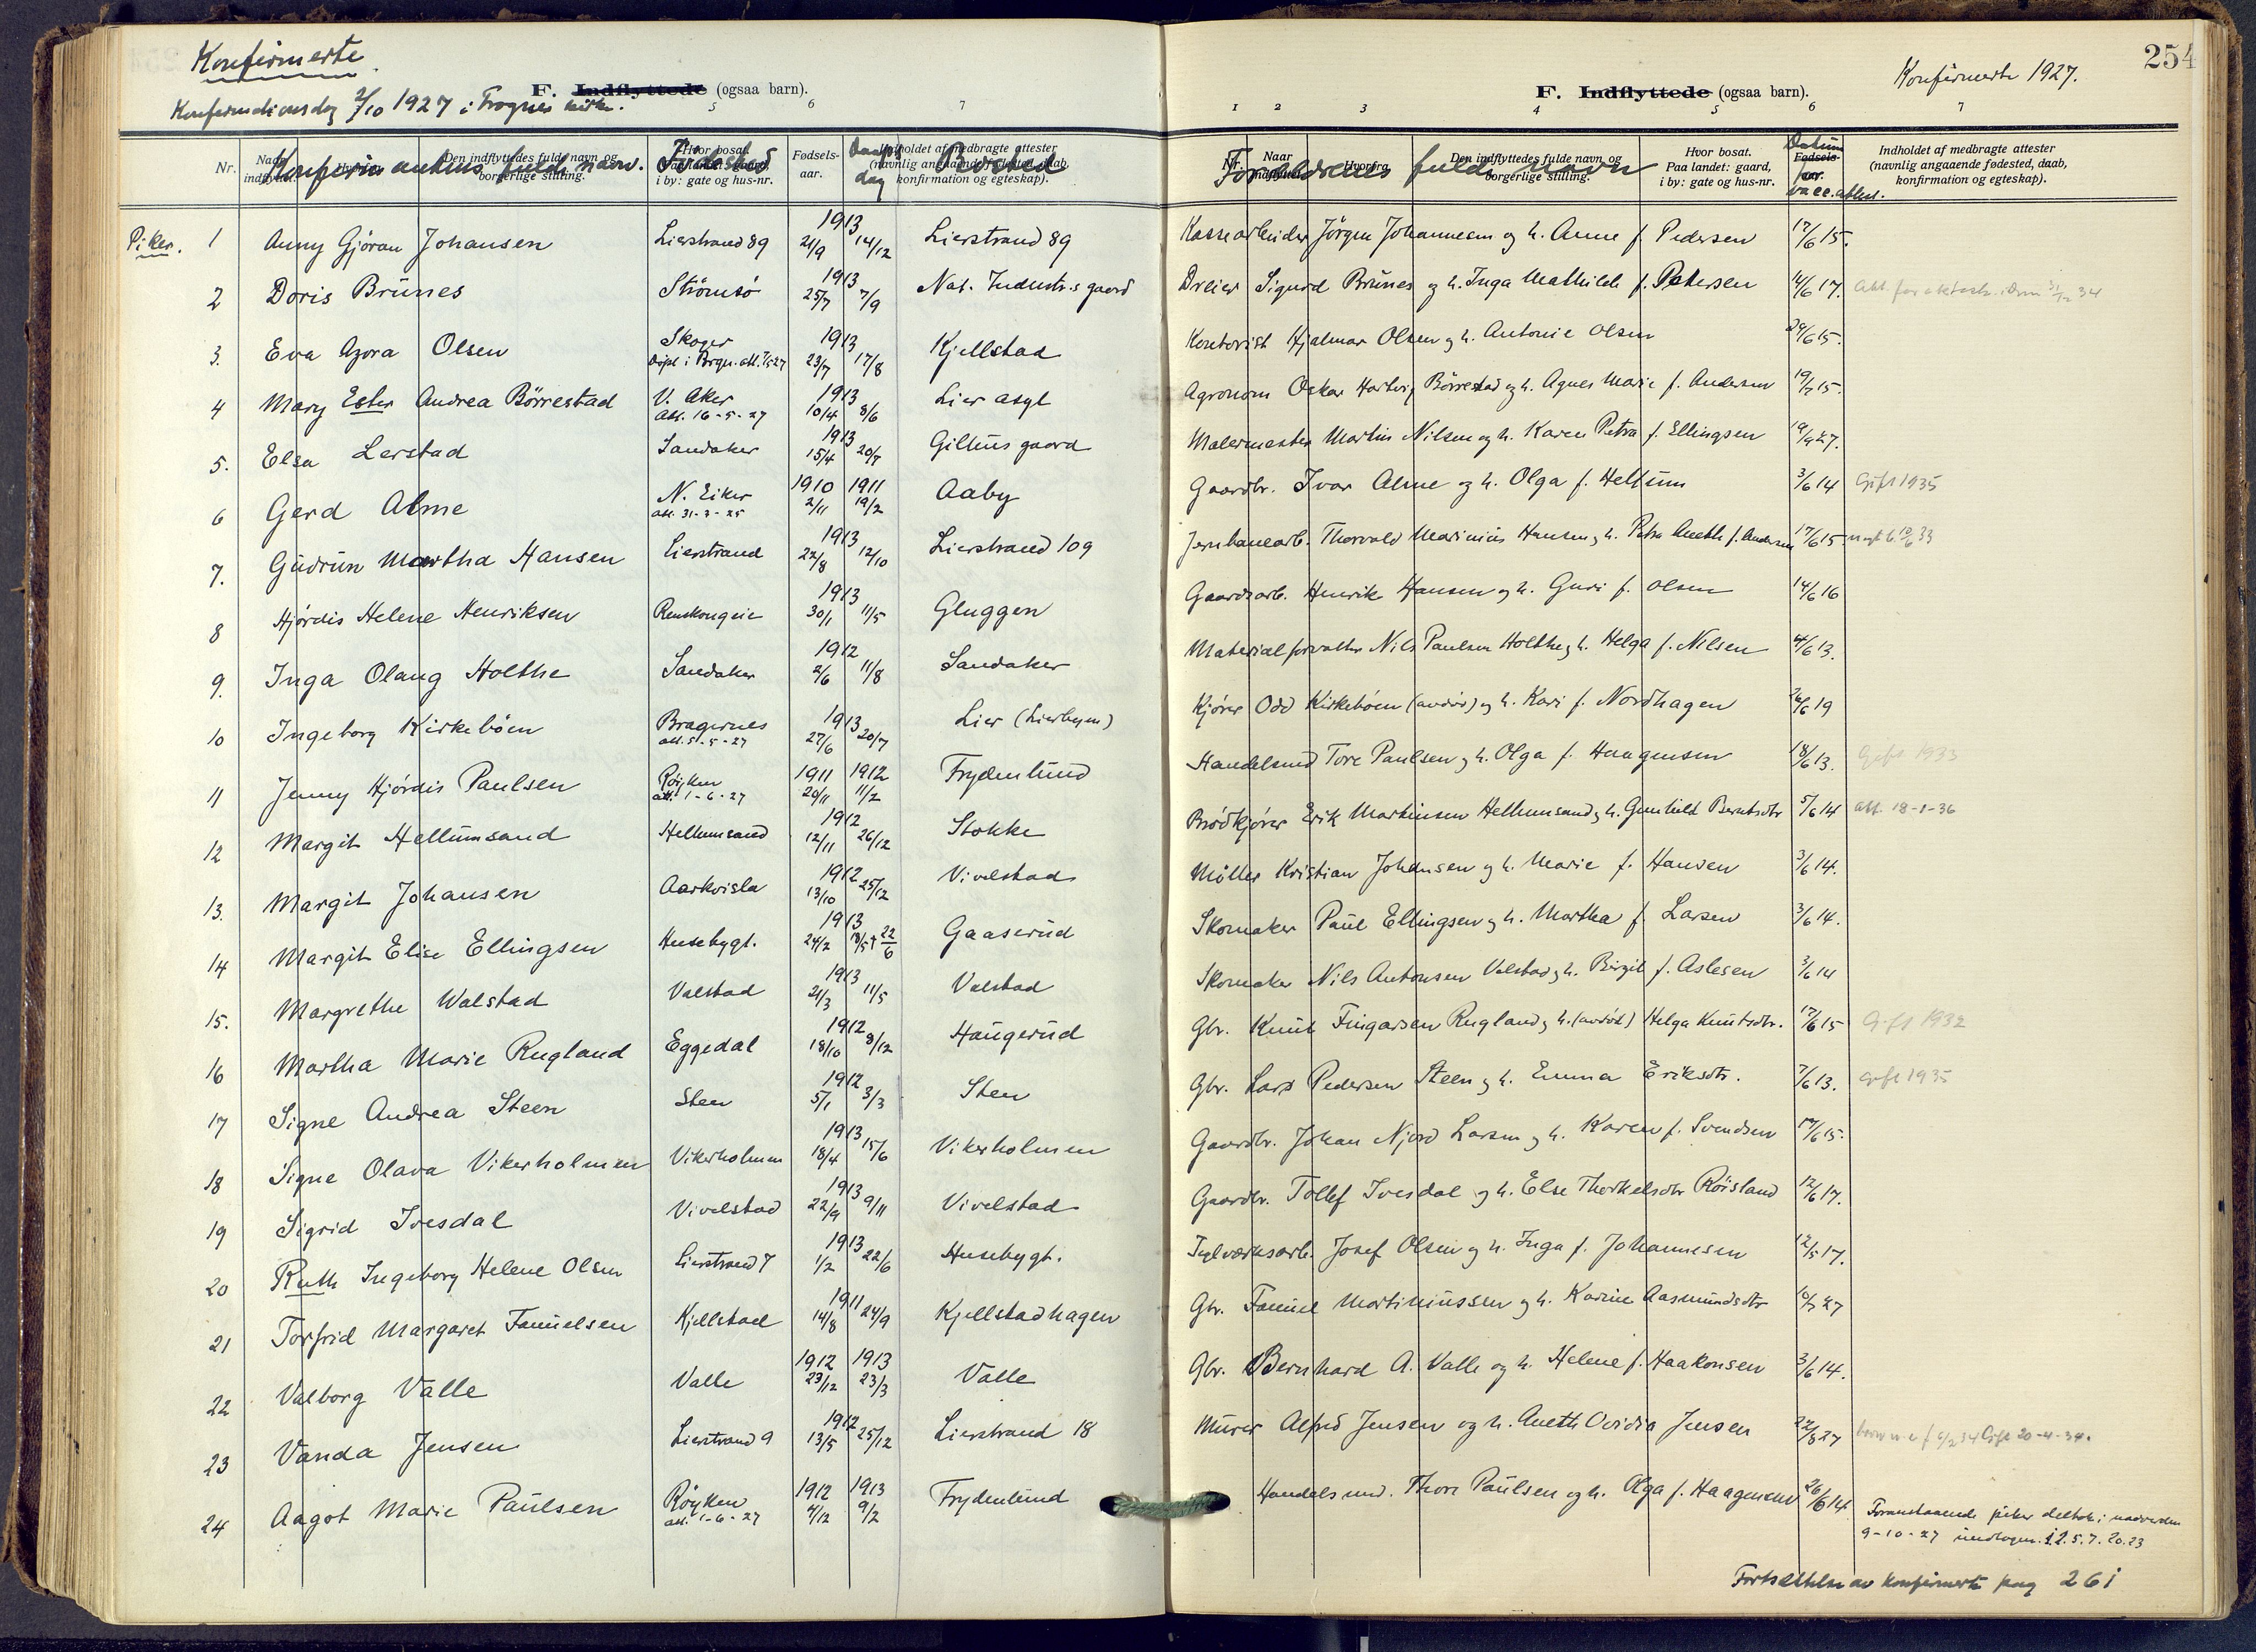 Konfirmerte
Konfirmationsdag 2/10 1927 i Frogner kirke.
F. Indflyttede (ogsaa barn).
5 6 7
Nr. Konfirmantens fulde navn. Fødested Fødselsaar. Daabsdag Bosted
Piker.
1 Anny Gjöran Johansen Lierstrand 89 1913 21/9 14/12 Lierstrand 89
2 Doris Brünes Strömsö 1913 25/7 7/9 Nat. Industr.s gaard
3. Eva Azora Olsen Skoger 1913 23/7 17/8 Kjellstad
4 Mary Ester Andrea Börrestad V. Aker att. 16-5-27 1913 10/4 8/6 Lier asyl
5. Elsa Lerstad Sandaker 1913 15/4 20/7 Gilhus gaard
6 Gerd Alme N. Eiker 1910 2/11 1911 19/2 Aaby
7. Gudrun Martha Hansen Lierstrand 1913 22/8 12/10 Lierstrand 109
8 Hjördis Helene Henriksen Renskougeie 1913 30/1 11/5 Gluggen
9. Inga Olaug Holthe Sandaker 1912 2/6 11/8 Sandaker
10 Ingeborg Kirkeböen Bragernes att. 5-5-27 1913 27/6 20/7 Lier (Lierbyen)
11 Jenny Hjördis Paulsen Röyken att. 1-6-27 1911 20/11 1912 11/2 Frydenlund
12 Margit Hellumsand Hellumsand 1912 12/11 26/12 Stokke
13. Margit Johansen Aarkvisla 1912 13/10 25/12 Vivelstad
14 Margit Elise Ellingsen Husebygt. 1913 24/2 18/5 + 22/6 Gaaserud
15. Margrethe Walstad Valstad 1913 21/3 11/5 Valstad
16 Martha Marie Rugland Eggedal 1912 18/10 8/12 Haugerud
17 Signe Andrea Steen Steen 1912 5/1 3/3 Sten
18 Signe Olava Vikerholmen Vikerholmen 1913 18/4 15/6 Vikerholmen
19 Sigrid Ivesdal Vivelstad 1913 22/9 9/11 Vivelstad
20 Ruth Ingeborg Helene Olsen Lierstrand 7 1913 1/2 22/6 Husebygt.
21 Torfrid Margaret Fanuelsen Kjellstad 1911 14/8 24/9 Kjellstadhagen
22 Valborg Valle Valle 1912 23/12 1913 23/3 Valle
23 Vanda Jensen Lierstrand 9 1912 13/5 25/12 Lierstrand 18
24 Aagot Marie Paulsen Röyken att. 1-6-27 1912 1913 9/2 Frydenlund
254
Konfirmerte 1927.
F. Indflyttede (ogsaa barn).
1 2 3 4 5 6 7
Foreldrenes fulde navn
Nr. Naar indflyttet. Hvorfra. Den indflyttedes fulde navn og borgerlige stilling. Hvor bosat. Paa landet: gaard, i by: gate og hus-nr. Datum vacc. attest. Indholdet af medbragte attester (navnlig angaaende fødested, daab, konfirmation og egteskap).
Kassearbeider Jörgen Johannesen og h. Anne f. Pedersen 17/6 15.
Dreier Sigurd Brünes og h. Inga Mathilde f. Petersen 14/6 17.
Kontorist Hjalmar Olsen og h. Antonie Olsen 29/6 15.
Agronom Oskar Hartvig Börrestad og h. Agnes Marie f. Andersen 19/7 15.
Malermester Martin Nilsen og h. Karen Petra f. Ellingsen 27.
Gaardbr. Ivar Alme og h. Olga f. Hellum 3/6 14 Gift 1935
Jernbanearb. Thorvald Marinius Hansen og h. Petra Anette f. Andersen 17/6 15
Gaardsarb. Henrik Hansen og h. Guri f. Olsen 14/6 16
Materialforvalter Nils Paulsen Holthe og h. Helga f. Nilsen 4/6 13.
Kjörer Odd Kirkeböen (avdöd) og h. Kari f. Nordhagen 26/6 19
Handelsmd Tore Paulsen og h. Olga f. Haagensen 18/6 13. Gift 1933
Brödkjörer Erik Martinsen Hellumsand og h. Gunhild Berntsdtr 5/6 14 att. 18-1-36
Möller Kristian Johansen og h. Marie f. Hansen 3/6 14.
Skomaker Paul Ellingsen og h. Martha f. Larsen 3/6 14.
Skomaker Nils Antonsen Valstad og h. Birgit f. Aslesen 3/6 14
Gbr. Knut Fingarsen Rugland og h. (avdöd) Helga Knutsdtr. 17/6 15 Gift 1932
Gbr. Lars Pedersen Steen og h. Emma Eriksdtr. 7/6 13. Gift 1935
Gaardbr. Johan Njord Larsen og h. Karen f. Svendsen 17/6 15.
Gaardbr. Tollef Ivesdal og h. Else Thorkelsdtr Röisland 12/6 17.
Josef Olsen og h. Inga f. Johannesen 12/5 17.
Gbr. Fanuel Martiniussen og h. Karine Aasmundsdtr 27
Gbr. Bernhard A. Valle og h. Helene f. Haakonsen 3/6 14.
Murer Alfred Jensen og h. Aneth Ovidia Jensen 22/8 27 Gift 20-4-34.
Handelsmd. Thore Paulsen og h. Olga f. Haagensen 26/6 14.
Foranstaaende piker deltok i nadverden
9-10-27 undtagen 1. 2. 5. 7. 20. 23
Fortsættelse av konfirmerte pag 261